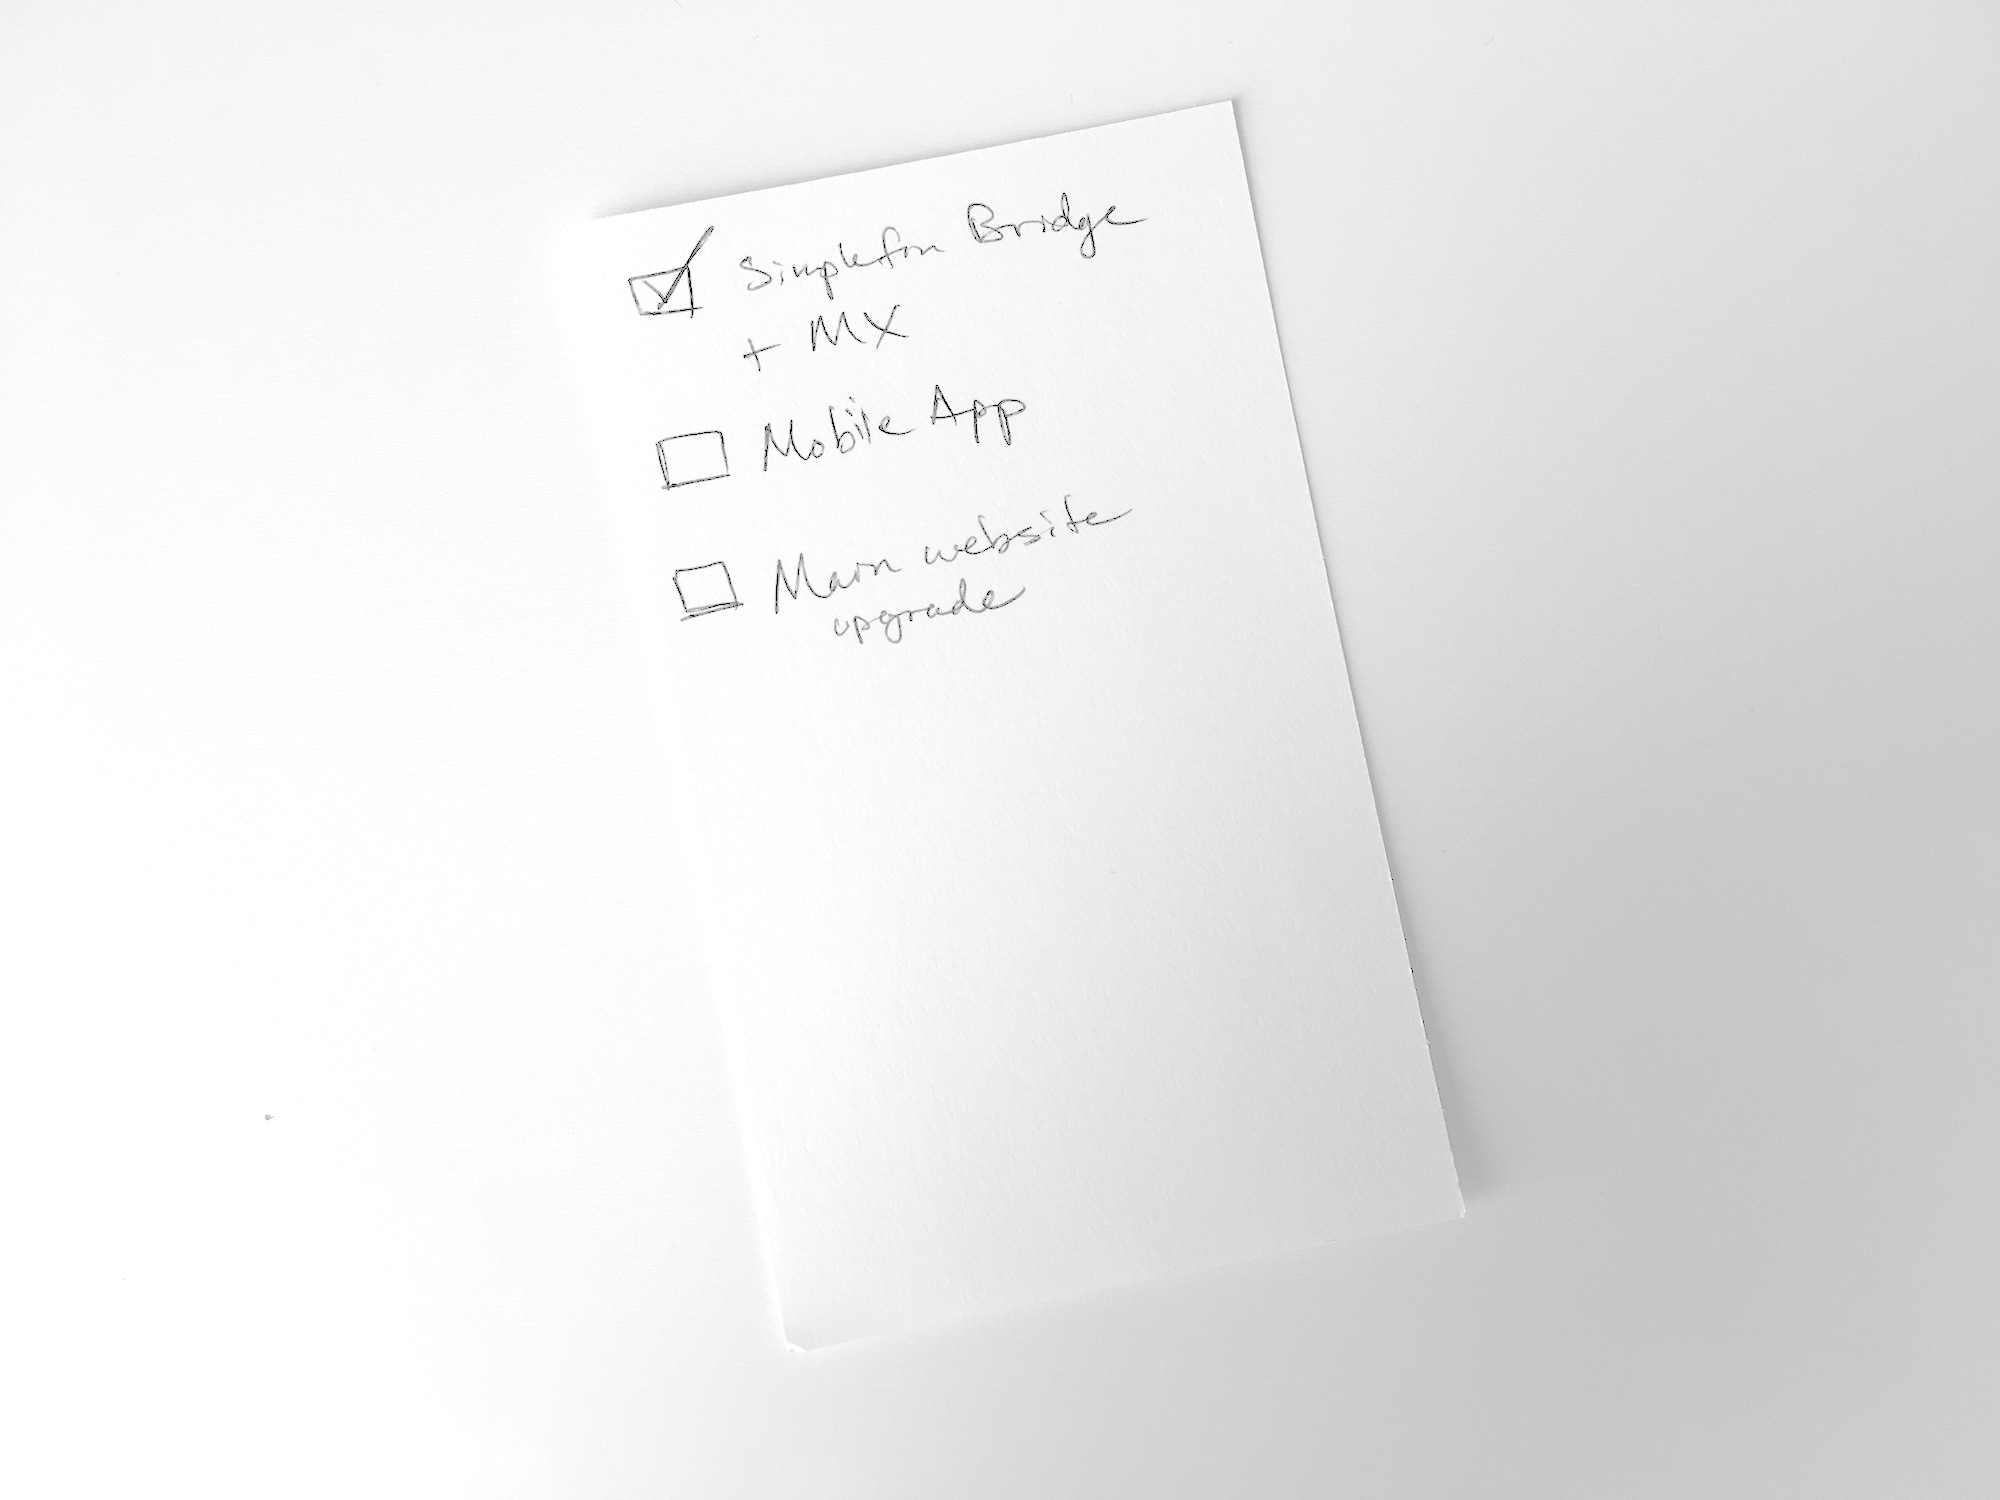 Simplefin Bridge
+ MX
Mobile App
Main website
upgrade